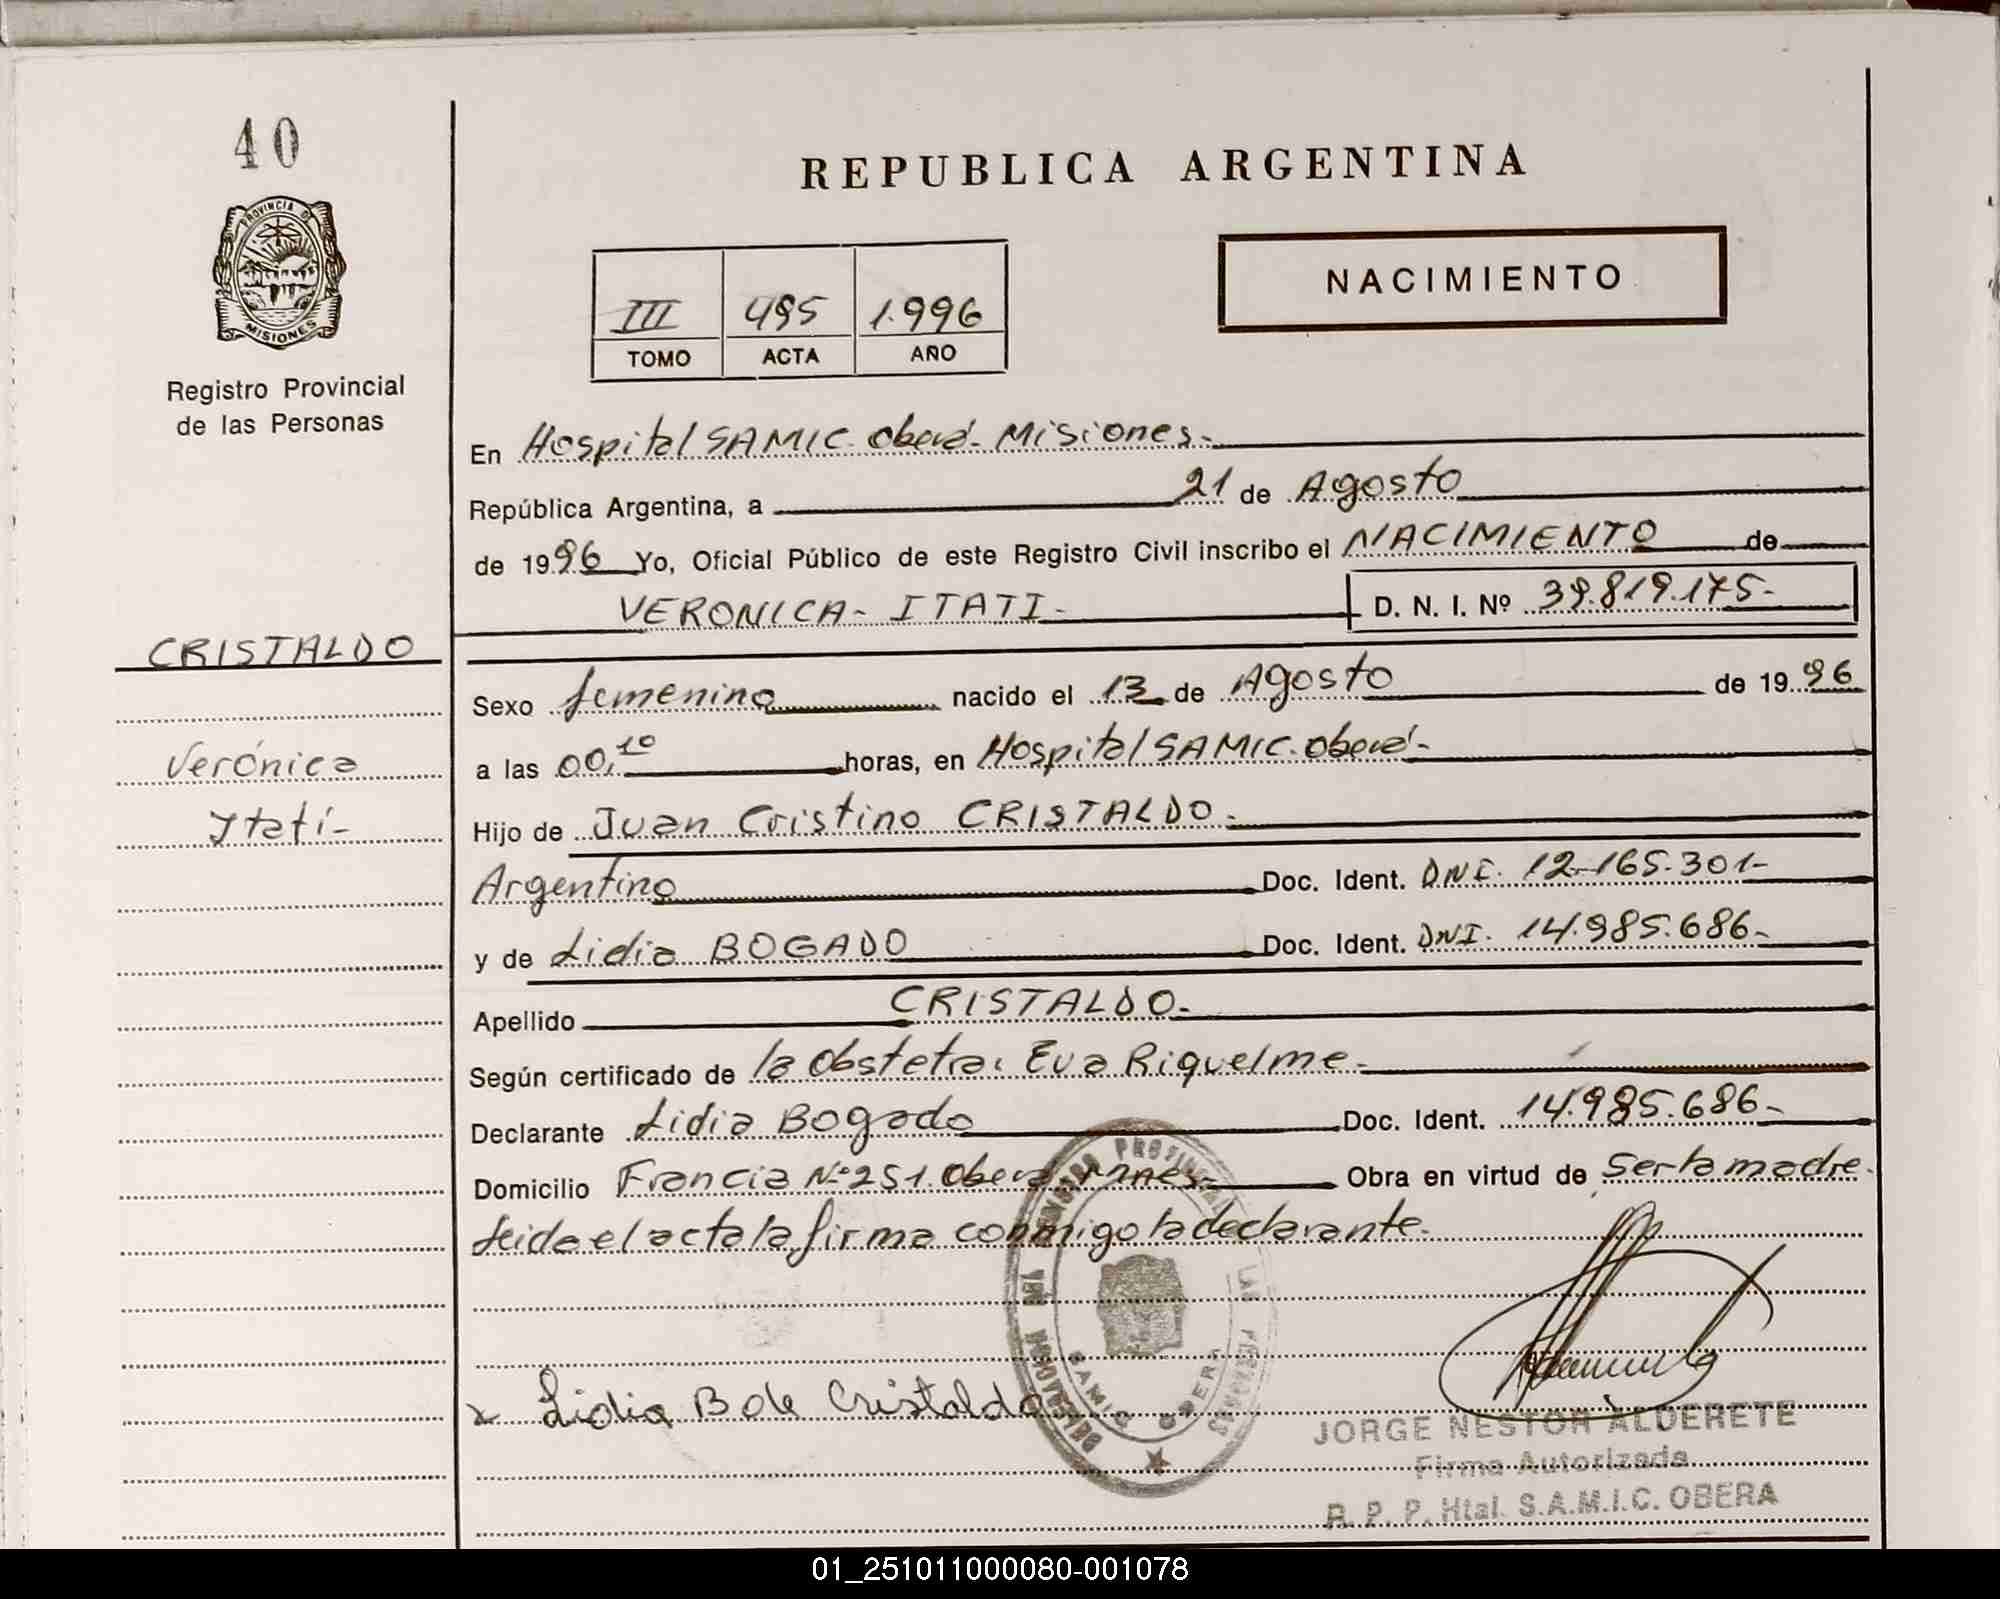 40
PROVINCIA DE
MISIONES
Registro Provincial
de las Personas
REPUBLICA ARGENTINA
III 495 1.996
TOMO ACTA AÑO
NACIMIENTO
En Hospital SAMIC. Oberá. Misiones.-
República Argentina, a 21 de Agosto
de 1996 Yo, Oficial Público de este Registro Civil inscribo el NACIMIENTO de
VERONICA- ITATI- D. N. I. Nº 39.819.175-
CRISTALDO
Verónica
Itatí-
Sexo femenino nacido el 13 de Agosto de 1996
a las 00,10 horas, en Hospital SAMIC. Oberá-
Hijo de Juan Cristino CRISTALDO.-
Argentino Doc. Ident. DNI. 12.165.301-
y de Lidia BOGADO Doc. Ident. DNI. 14.985.686-
Apellido CRISTALDO.-
Según certificado de la Obstetra: Eva Riquelme.-
Declarante Lidia Bogado Doc. Ident. 14.985.686-
Domicilio Francia Nº 251. Oberá-Mnes- Obra en virtud de Ser la madre.
Leida el acta la firma conmigo la declarante.
x Lidia B de Cristaldo
SAMIC OBERA
JORGE NESTOR ALDERETE
Firma Autorizada
R. P. P. Htal. S.A.M.I.C. OBERA
01_251011000080-001078